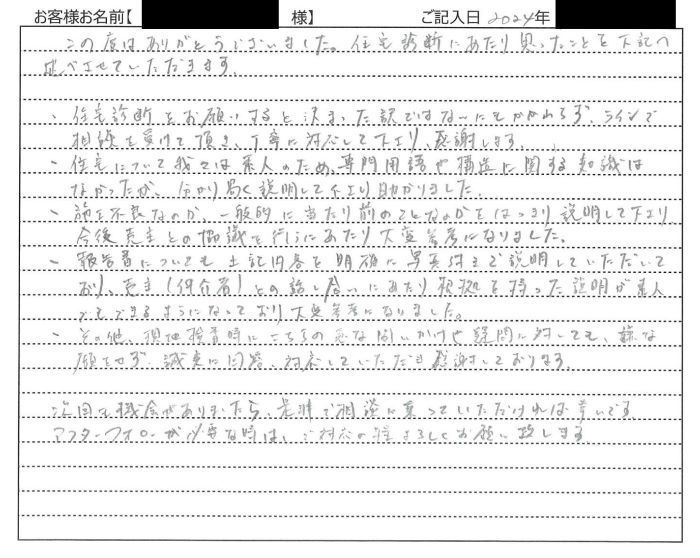 お客様お名前【 様】 ご記入日 2024年
この度はありがとうございました。住宅診断にあたり思ったことを下記へ
述べさせていただきます。
- 住宅診断をお願いすると決まった訳ではないにもかかわらず、ラインで
相談を受けて頂き、丁寧に対応して下さり、感謝します。
- 住宅について我々は素人のため、専門用語や構造に関する知識は
なかったが、分かり易く説明して下さり助かりました。
- 施工不良なのか、一般的に当たり前のことなのかをはっきり説明して下さり
今後売主との協議を行うにあたり大変参考になりました。
- 報告書についても上記内容を明確に写真付きで説明していただいて
おり、売主(仲介者)との話し合いにあたり根拠を持った説明が素人
でもできるようになっており大変参考になりました。
- その他、現地検査時にこちらの急な問いかけや疑問に対しても、嫌な
顔をせず、誠実に回答、対応していただき感謝しております。
次回も機会がありましたら、是非ご相談に乗っていただければ幸いです。
アフターフォローが必要な時は、ご対応の程よろしくお願い致します。